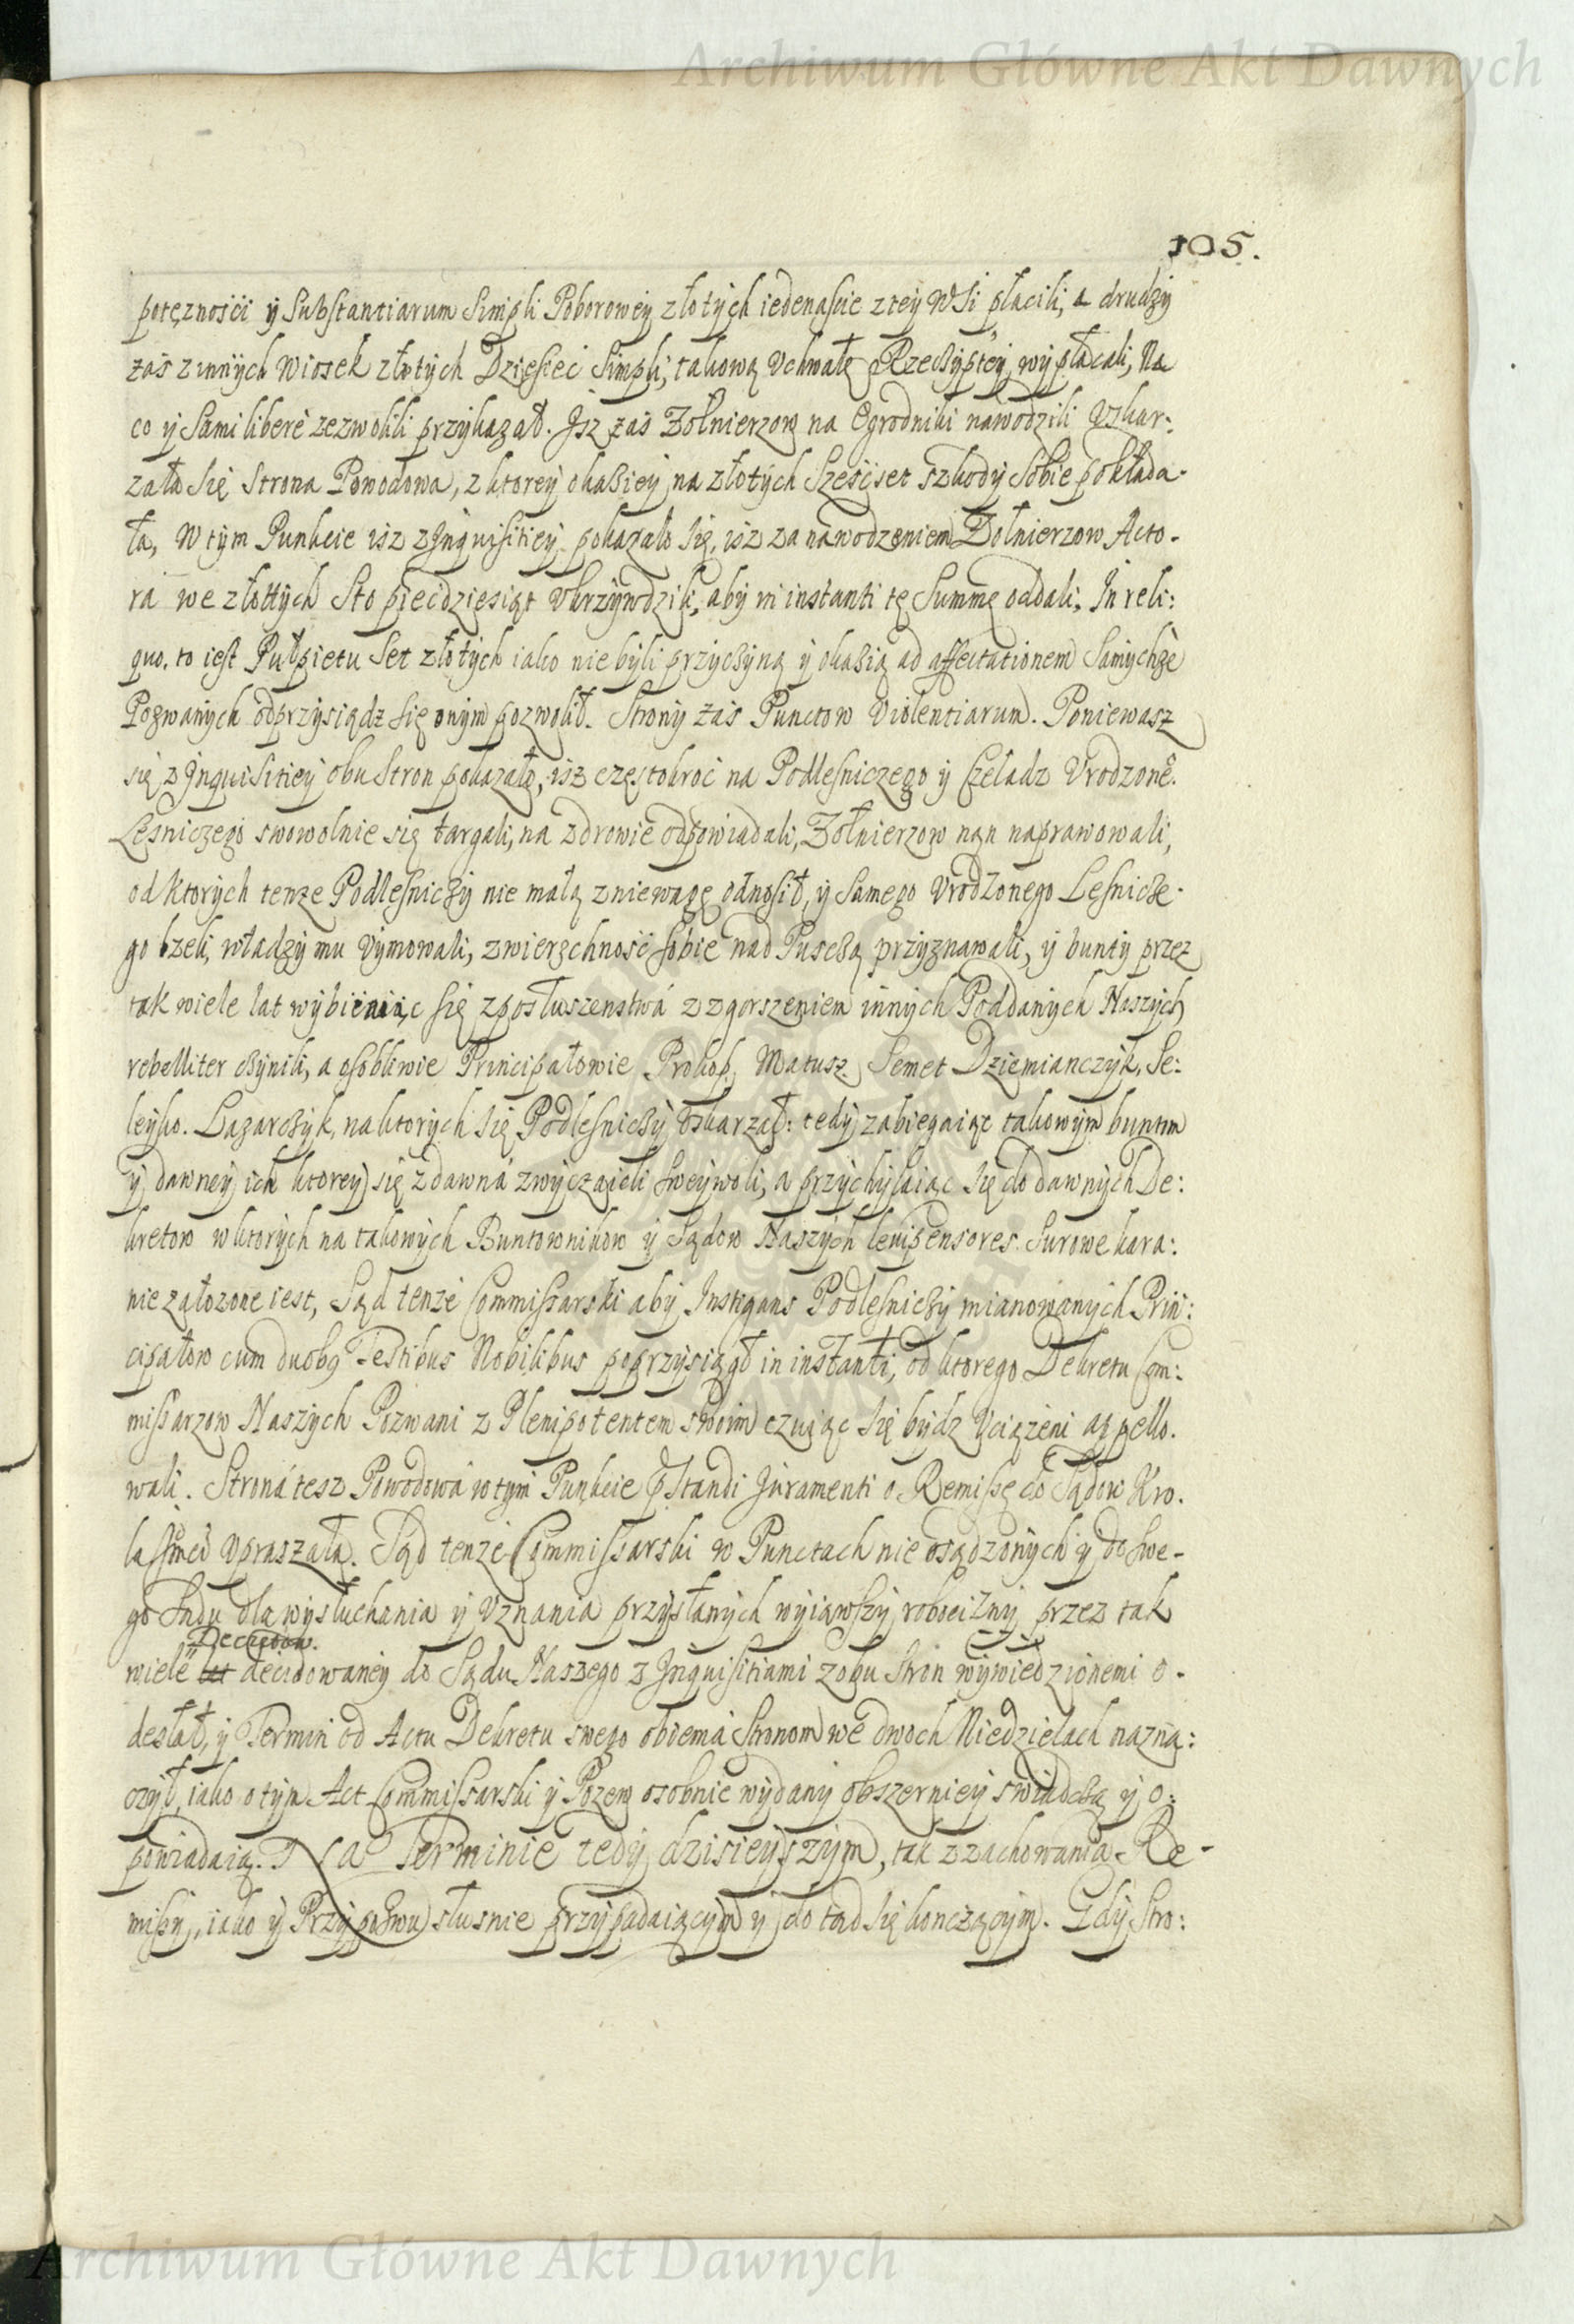 Archiwum Główne Akt Dawnych
105.
potęznośći ÿ Substantiarum Simpli Poborowéÿ złotÿch iedenaście z teÿ WSi płacili, a drudzÿ
zaś z innÿch Wiosek złotÿch Dzięsięć Simpli, takową Uchwałę Rzeczÿptéÿ wÿpłacali, Na
co ÿ Sami liberè zezwolili przÿkazał. Jsz zaś Zołnierzow na Ogrodniki nawodzili Uskar:
zała Się Strona Powodowa, z ktoreÿ okaßieÿ na złotÿch Sześćset szkodÿ Sobie pokłada-
ła, W tÿm Punkcie isz z Jnquisitieÿ pokazało Się, isz za nawodzeniem Zołnierzow Acto-
ra we złottÿch Sto pięćdziesiąt Ukrzÿwdzili, abÿ in instanti tę Summę oddali, In reli:
quo, to iest Pułpietu Set złotÿch iako nie bÿli przÿczÿną ÿ okaßią ad affectationem Samÿchże
Pozwanÿch odprzÿsiądz Się onÿm pozwolił. Stronÿ zaś Punctow Violentiarum. Poniewasz
się z Jnquisitieÿ obu Stron pokazało, isz częstokroć na Podleśniczego ÿ Czeladz Urodzone.
Leśniczego swowolnie się targali, na zdrowie odpowiadali, Zołnierzow nań naprawowali,
od ktorÿch tenze Podleśniczÿ nie małą zniewagę odnosił, ÿ Samego Urodzonego Leśnicze-
go lzeli, władzÿ mu Uÿmowali, zwierzchność Sobie nad Puszczą przÿznawali, ÿ buntÿ przez
tak wiele lat wÿbiiaiąc Się z posłuszenstwá z zgorszeniem innÿch Poddanÿch Naszÿch
rebelliter czÿnili, a osobliwie Principałowie Prokop, Matusz, Semet Dziemianczÿk, Se:
leÿko. Lazarczÿk, na ktorÿch Się Podleśniczÿ Uskarzał: tedÿ zabiegaiąc takowÿm buntm
ÿ dawneÿ ich ktoreÿ się z dawná zwÿczaieli Sweÿwoli, a przÿchÿlaiąc Się do dawnÿch De:
kretow w ktorÿch na takowÿch Buntownikow ÿ Sądow Naszÿch levipensores. Surowe kara:
nie założone iest, Sąd tenże Commissarski abÿ Instigans Podleśniczÿ mianowanÿch Prin:
cipałow cum duobꝰ Testibus Nobilibus poprzÿsiągł in instanti, od ktorego Dekretu Com:
missarzow Naszÿch Pozwani z Plenipotentem swoim czuiąc Się bÿdz Uciążeni appello.
wali. Stroná tesz Powodowá w tÿm Punkcie pstandi Juramenti o Remissę do Sądow Kro.
la Jmći Upraszała. Sąd tenże Commissarski w Punctach nie osądzonÿch ÿ do Swe-
go Sądu dla wÿsłuchania ÿ Uznania przÿsłanÿch wÿiąwszÿ robocizny przez tak
Decretow.
wiele lat decidowaneÿ do Sądu Naszego z Jnquisitiami z obu Stron wÿwiedzionemi o-
desłał, ÿ Termin od Actu Dekretu swego obiemá Stronom we dwoch Niedzielach nazna:
czÿł, iako o tÿm Act Commissarski ÿ Pozew osobnie wÿdanÿ obszernieÿ swiadczą ÿ o:
powiadaią. Na Terminie tedÿ dzisieÿszÿm, tak z zachowania Re-
missÿ, iako ÿ Przÿpozwu słusnie przÿpadaiącÿm ÿ do tad Się konczącÿm. Gdÿ Stro:
Archiwum Główne Akt Dawnych